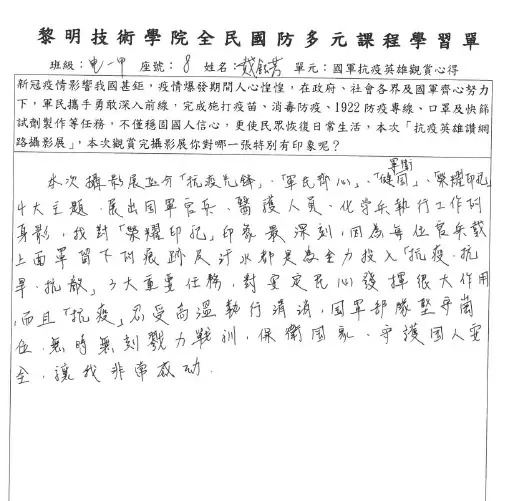 黎明技術學院全民國防多元課程學習單
班級：電一甲 座號：8 姓名：戴 芳 單元：國軍抗疫英雄觀賞心得
新冠疫情影響我國甚鉅，疫情爆發期間人心惶惶，在政府、社會各界及國軍齊心努力
下，軍民攜手勇敢深入前線，完成施打疫苗、消毒防疫、1922防疫專線、口罩及快篩
試劑製作等任務，不僅穩固國人信心，更使民眾恢復日常生活，本次「抗疫英雄讚網
路攝影展」，本次觀賞完攝影展你對哪一張特別有印象呢？
本次攝影展區分「抗疫先鋒」、「軍民齊心」、「軍衛健國」、「榮耀印記」
4大主題，展出國軍官兵、醫護人員、化學兵執行工作的
身影，我對「榮耀印記」印象最深刻，因為每位官兵戴
上面罩留下的痕跡及汗水都是為全力投入「抗疫、抗
旱、抗敵」3大重要任務，對安定民心發揮很大作用
，而且「抗疫」忍受高溫執行消消，國軍部隊堅守崗
位，無時無刻戮力戰訓，保衛國家、守護國人安
全，讓我非常感動．